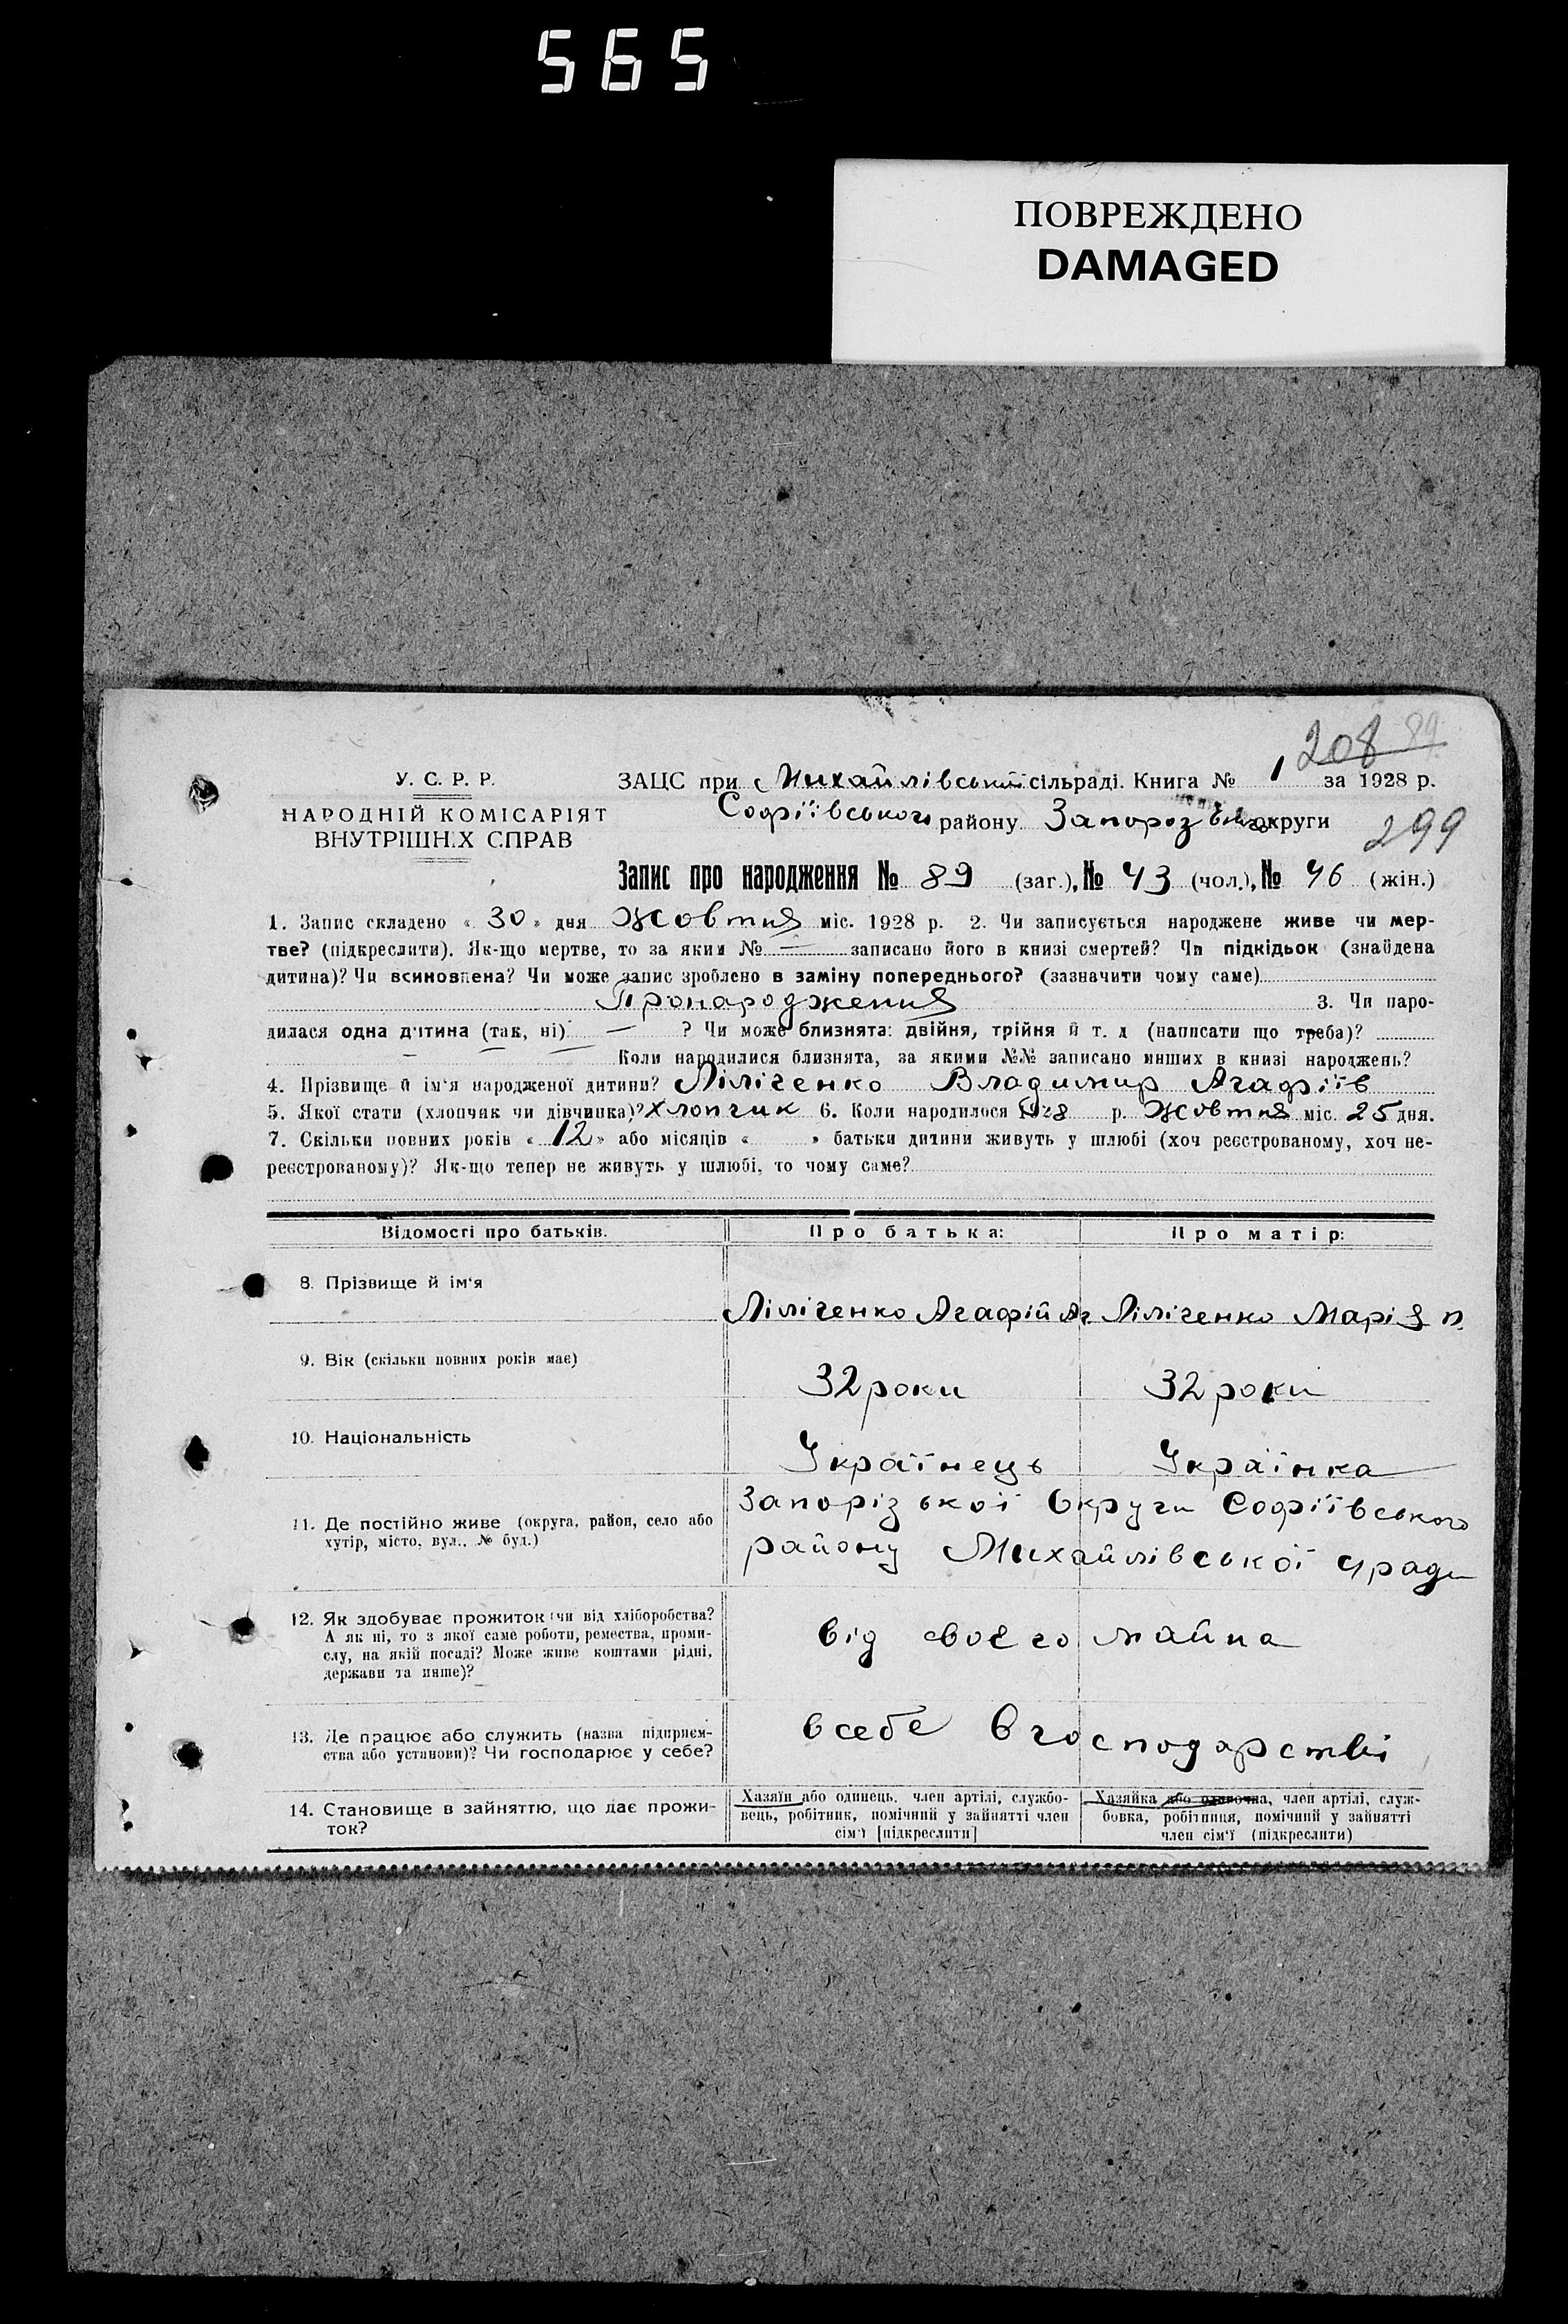 565
ПОВРЕЖДЕНО
DAMAGED
208 89
У. С. Р. Р.
НАРОДНІЙ КОМІСАРІЯТ
ВНУТРІШНІХ СПРАВ
ЗАЦС при Михайлівській сільраді. Книга № 1 за 1928 р.
Софіївського району Запорозької округи
299
Запис про народження № 89 (заг.), № 43 (чол.), № 46 (жін.)
1. Запис складено « 30 » дня Жовтня міс. 1928 р. 2. Чи записується народжене живе чи мер-
тве? (підкреслити). Як-що мертве, то за яким № — записано його в книзі смертей? Чи підкідьок (знайдена
дитина)? Чи всиновлена? Чи може запис зроблено в заміну попереднього? (зазначити чому саме)
Пронародження 3. Чи наро-
дилася одна дитина (так, ні) — ? Чи може близнята: двійня, трійня й т. д (написати що треба)?
Коли народилися близнята, за якими №№ записано инших в книзі народжень?
4. Прізвище й ім'я народженої дитини? Ліліченко Владимир Агафіїв
5. Якої стати (хлопчик чи дівчинка)? Хлопчик 6. Коли народилося 1928 р. Жовтня міс. 25 дня.
7. Скільки повних років « 12 » або місяців « » батьки дитини живуть у шлюбі (хоч реєстрованому, хоч не-
реєстрованому)? Як-що тепер не живуть у шлюбі, то чому саме?
Відомості про батьків. Про батька: Про матір:
8. Прізвище й ім'я
Ліліченко Агафій Аг Ліліченко Марія П.
9. Вік (скільки повних років має)
32 роки 32 роки
10. Національність
Українець Українка
11. Де постійно живе (округа, район, село або
хутір, місто, вул., № буд.)
Запорізької округи Софіївського
району Михайлівської с/ради
12. Як здобуває прожиток: чи від хліборобства?
А як ні, то з якої саме роботи, ремества, проми-
слу, на якій посаді? Може живе коштами рідні,
держави та инше)?
від своєго майна
13. Де працює або служить (назва підприєм-
ства або установи)? Чи господарює у себе?
всебе в господарстві
14. Становище в зайняттю, що дає прожи-
ток?
Хазяїн або одинець, член артілі, службо-
вець, робітник, помічний у зайнятті член
сім'ї [підкреслити]
Хазяйка або одиночка, член артілі, служ-
бовка, робітниця, помічний у зайнятті
член сім'ї (підкреслити)